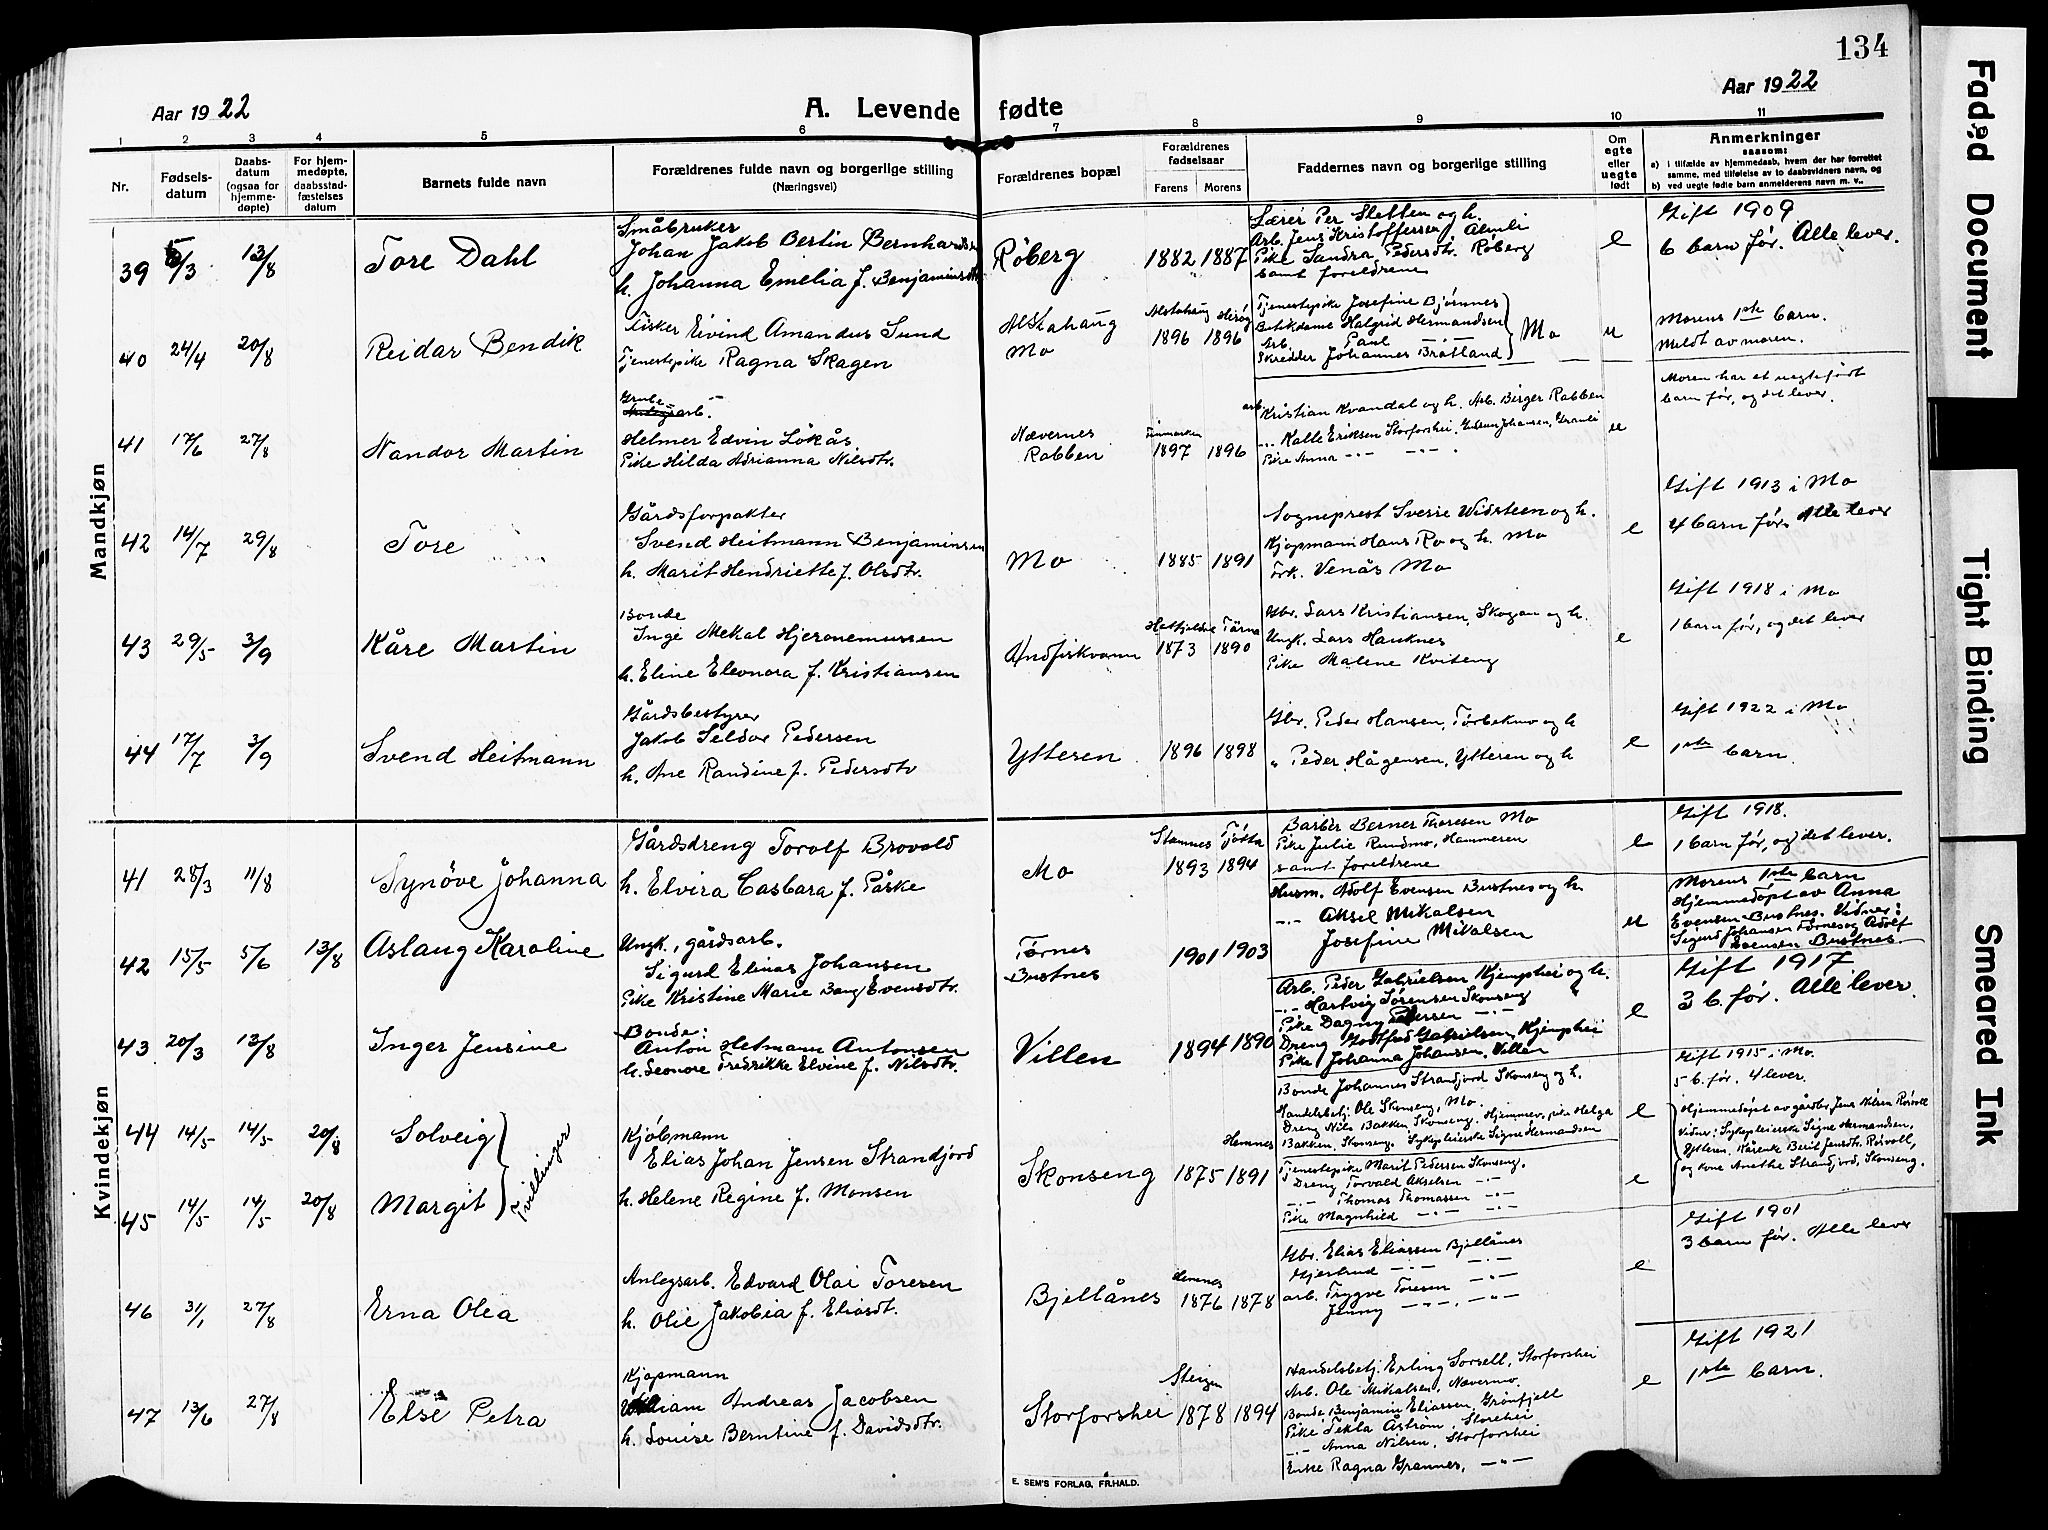 134
Aar 1922
A. Levende fødte
Aar 1922
1 2 3 4 5 6 7 8 9 10 11
Nr.
Fødsels-
datum
Daabs-
datum
(ogsaa for
hjemme-
døpte)
For hjem-
medøpte,
daabsstad-
fæstelses
datum
Barnets fulde navn
Forældrenes fulde navn og borgerlige stilling
(Næringsvei)
Forældrenes bopæl
Forældrenes
fødselsaar
Farens Morens
Faddernes navn og borgerlige stilling
Om
egte
eller
uegte
født
Anmerkninger
saasom:
a) i tilfælde av hjemmedaab, hvem der har forrettet
samme, med tilføielse av to daabsvidners navn, og
b) ved uegte fødte barn anmelderens navn m. v..
Mandkjøn
39 5/3 13/8 Tore Dahl
Småbruker
Johan Jakob Bertin Bernhardsen
h. Johanna Emelia f. Benjaminsdtr.
Røberg 1882 1887
Lærer Per Sletten og h.
Arb. Jens Kristoffersen, Almli
Pike Sandra Pedersdtr. Røberg
samt foreldrene
e
Gift 1909
6 barn før. Alle lever.
40 24/4 20/8 Reidar Bendik
Fisker Eivind Amandus Sund
Tjenestepike Ragna Skagen
Alstahaug
Mo
Alstahaug Herøy
1896 1896
Tjenestepike Josefine Bjørnnes
Butikdame Halgrid Hermandsen
Arb. Paul -"-
Skredder Johannes Bratland
Mo
u
Morens 1ste barn.
Meldt av moren.
41 17/6 27/8 Nandor Martin
Grube
arb.
Helmer Edvin Løkås
Pike Hilda Adrianna Nilsdtr.
Nævernes
Rabben
Finmarken
1897 1896
arb. Kristian Kvandal og h. Arb. Birger Rabben
-"- Kalle Eriksen Storforshei, Johansen, Granli
Pike Anna -"- -"-
u
Moren har et uegtefødt
barn før, og det lever.
42 14/7 29/8 Tore
Gårdsforpakter
Svend Heitmann Benjaminsen
h. Marit Hendriette f. Olsdtr.
Mo 1885 1891
Sogneprest Sverre Widsteen og h.
Kjøpmann Hans Ro og h. Mo
Frk. Venås Mo
e
Gift 1913 i Mo
4 barn før. Alle lever
43 29/5 3/9 Kåre Martin
Bonde
Inge Mekal Hjeronemussen
h. Eline Eleonora f. Kristiansen
Andfiskvann
Hatfjeldal Tärna
1873 1890
Gbr. Lars Kristiansen, Skogan og h.
Ungk. Lars Hauknes
Pike Malene Kviteng
e
Gift 1918 i Mo
1 barn før, og det lever
44 17/7 3/9 Svend Heitmann
Gårdsbestyrer
Jakob Seldor Pedersen
h. Ane Randine f. Pedersdtr
Ytteren 1896 1898
Gbr. Peder Hansen, Tørbekmo og h
" Peder Hågensen, Ytteren og h
e
Gift 1922 i Mo
1ste barn
Kvindekjøn
41 28/3 11/8 Synöve Johanna
Gårdsdreng Torolf Brovold
h. Elvira Casbara f. Påske
Mo
Stamnes Tjøtta
1893 1894
Barber Berner Thoresen Mo
Pike Julie Rundmo, Hammeren
samt foreldrene
e
Gift 1918.
1 barn før, og det lever.
42 15/5 5/6 13/8 Aslaug Karoline
Ungk., gårdsarb.
Sigurd Elinas Johansen
Pike Kristine Marie Bang Evensdtr.
Tørnes
Bustnes
1901 1903
Husm. Adolf Evensen Bustnes og h.
-"- Aksel Mikalsen
Josefine Mikalsen
u
Morens 1ste barn
Hjemmedøpt av Anna
Evensen Bustnes. Vidner:
Sigurd Johansen Tørnes og Adolf
Evensen Bustnes.
43 20/3 13/8 Inger Jensine
Bonde:
Anton Hetmann Antonsen
h. Leonore Fredrikke Elvine f. Nilsdtr.
Villen 1894 1890
Arb. Peder Gabrielsen Kjemphei og h.
-"- Hartvig Sørensen Skonseng "
Pike Dagny Pedersen -"-
Dreng Gottfred Gabrielsen, Kjemphei
Pike Johanna Johansen, Villen
e
Gift 1917
3 b. før. Alle lever.
44 14/5 14/5 20/8 Solveig
45 14/5 14/5 20/8 Margit
Tvillinger
Kjöbmann
Elias Johan Jensen Strandjord
h. Helene Regine f. Monsen
Skonseng
Hemnes
1875 1891
Bonde Johannes Strandjord Skonseng og h.
Handelsbetj. Ole Skonseng, Mo.
Dreng Nils Bakken, Skonseng. Hjemmev. pike Helga
Bakken, Skonseng. Sykepleierske Signe Hermandsen
Tjenestepike Marit Pedersen Skonseng.
Dreng Torvald Akselsen -"-
-"- Thomas Thomassen -"-
Pike Magnhild -"- -"-
e
e
Gift 1915 i Mo.
5 b. før. 4 lever.
Hjemmedøpt av gårdbr. Jens Nilsen Røvoll
Vidner: Sykepleierske Signe Hermandsen,
Ytteren, Kårenke Berit Jensdtr. Røvoll,
og kone Anethe Strandjord, Skonseng.
46 31/1 27/8 Erna Olea
Anlegsarb. Edvard Olai Toresen
h. Olie Jakobia f. Eliasdt.
Bjellånes
Hemnes
1876 1878
Gbr. Elias Eliassen Bjellånes
Gjertrud -"- -"-
arb. Trygve Toresen -"-
Jenny -"- -"-
e
Gift 1901
3 barn før. Alle lever
47 13/6 27/8 Else Petra
Kjøpmann
William Andreas Jacobsen
h. Louise Berntine f. Davidsdtr.
Storforshei
Steigen
1878 1894
Handelsbetj. Erling Sorsell, Storforshei
Arb. Ole Mikalsen, Nævermo.
Bonde Benjamin Eliassen, Grønfjell
Pike Tekla Åström, Storshei
-"- Anna Nilsen, Storforshei
Enke Ragna Grannes, -"-
e
Gift 1921
1ste barn.
E. SEM'S FORLAG, FR.HALD.
Faded Document
Tight Binding
Smeared Ink